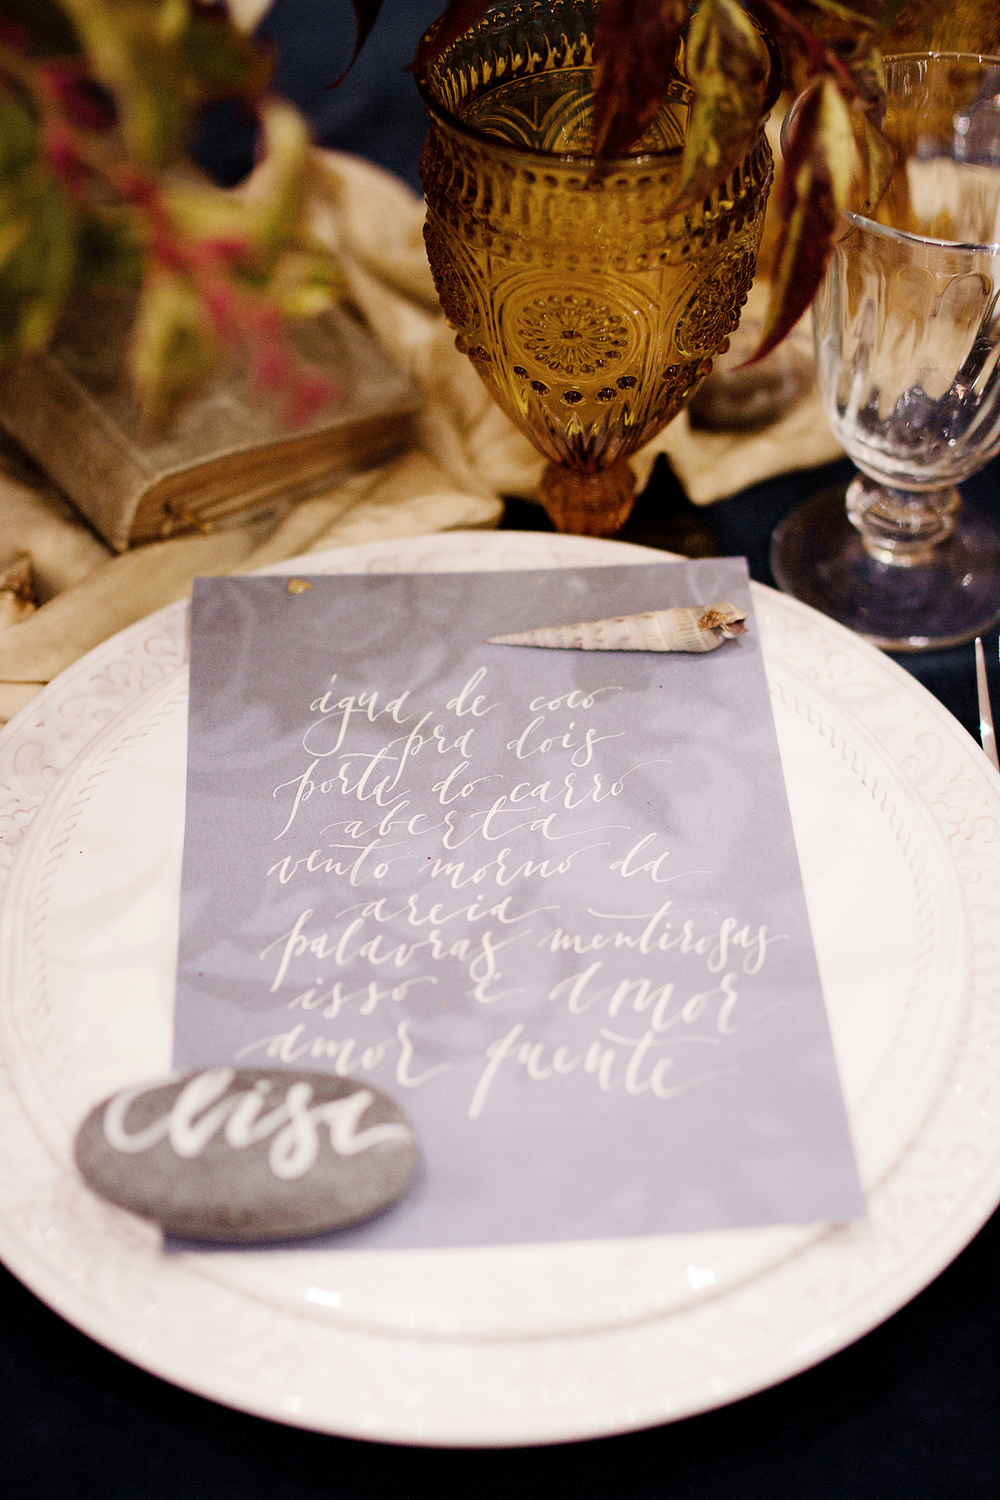 água de coco
pra dois
porta do carro
aberta
vento morno da
areia
palavras mentirosas
isso é amor
amor quente
elisa